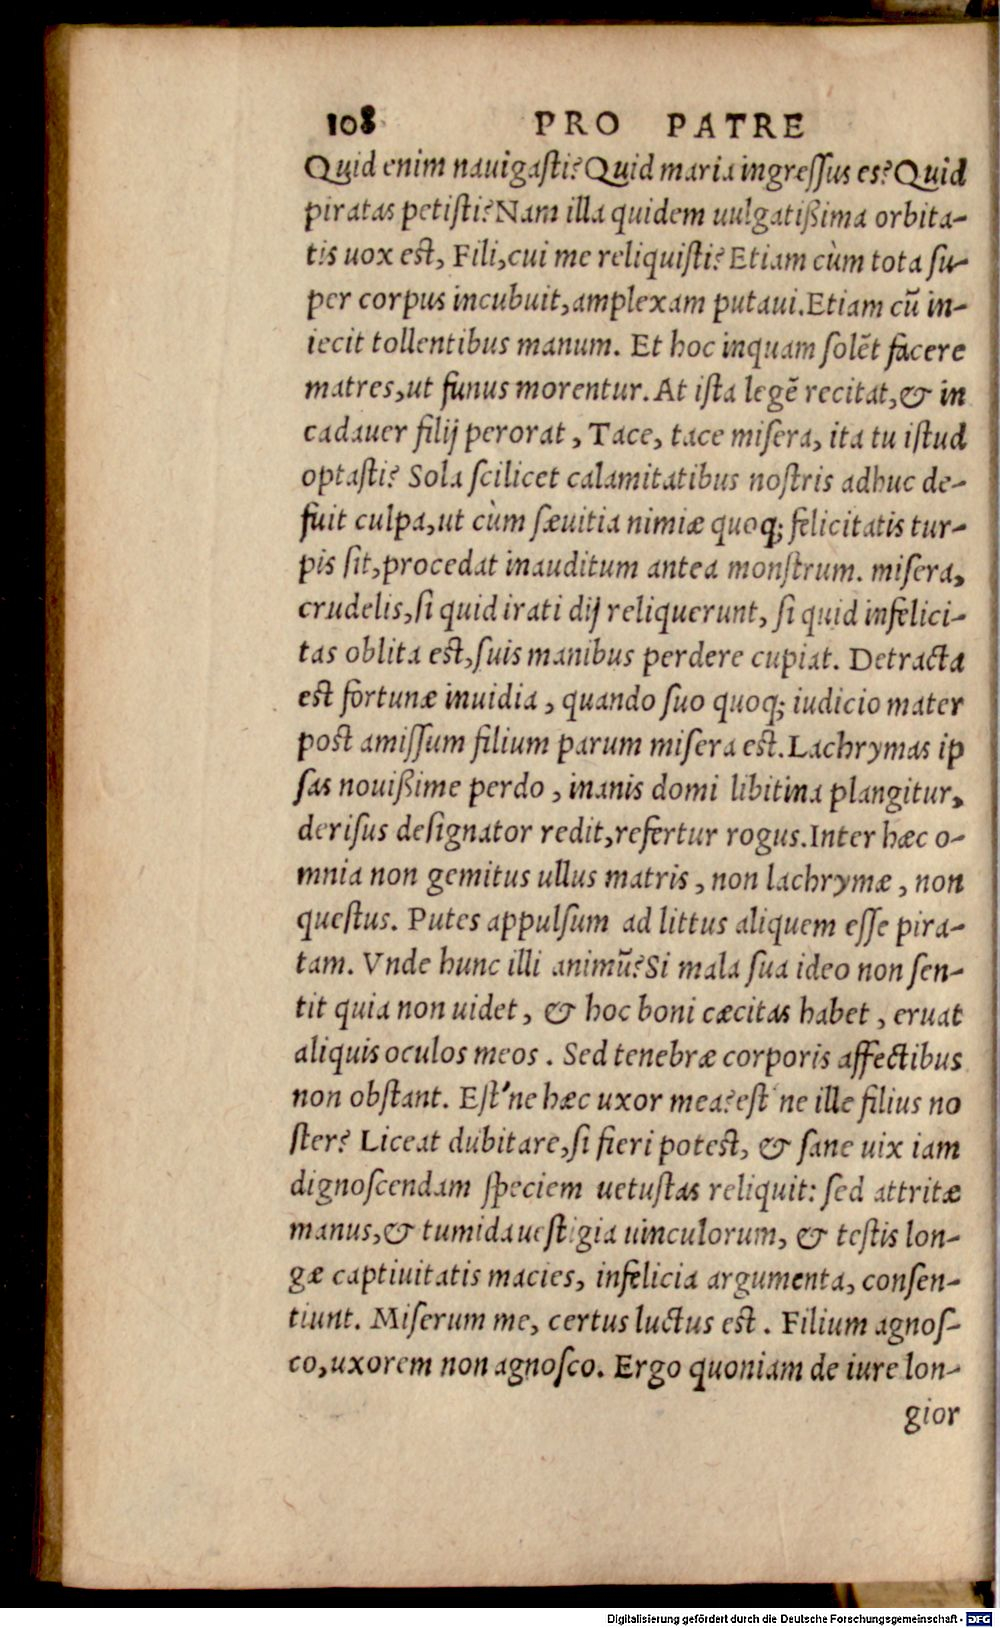 108 PRO PATRE
Quid enim nauigasti? Quid maria ingressus es? Quid
piratas petisti? Nam illa quidem uulgatißima orbita-
tis uox est, Fili, cui me reliquisti? Etiam cùm tota su-
per corpus incubuit, amplexam putaui. Etiam cũ in-
iecit tollentibus manum. Et hoc inquam solẽt facere
matres, ut funus morentur. At ista legẽ recitat, & in
cadauer filij perorat, Tace, tace misera, ita tu istud
optasti? Sola scilicet calamitatibus nostris adhuc de-
fuit culpa, ut cùm sæuitia nimiæ quoq; felicitatis tur-
pis sit, procedat inauditum antea monstrum. misera,
crudelis, si quid irati dij reliquerunt, si quid infelici-
tas oblita est, suis manibus perdere cupiat. Detracta
est fortunæ inuidia, quando suo quoq; iudicio mater
post amissum filium parum misera est. Lachrymas ip
sas nouißime perdo, inanis domi libitina plangitur,
derisus designator redit, refertur rogus. Inter hæc o-
mnia non gemitus ullus matris, non lachrymæ, non
questus. Putes appulsum ad littus aliquem esse pira-
tam. Vnde hunc illi animũ? Si mala sua ideo non sen-
tit quia non uidet, & hoc boni cæcitas habet, eruat
aliquis oculos meos. Sed tenebræ corporis affectibus
non obstant. Est'ne hæc uxor mea? est'ne ille filius no
ster? Liceat dubitare, si fieri potest, & sane uix iam
dignoscendam speciem uetustas reliquit: sed attritæ
manus, & tumida uestigia uinculorum, & testis lon-
gæ captiuitatis macies, infelicia argumenta, consen-
tiunt. Miserum me, certus luctus est. Filium agnos-
co, uxorem non agnosco. Ergo quoniam de iure lon-
gior
Digitalisierung gefördert durch die Deutsche Forschungsgemeinschaft - DFG